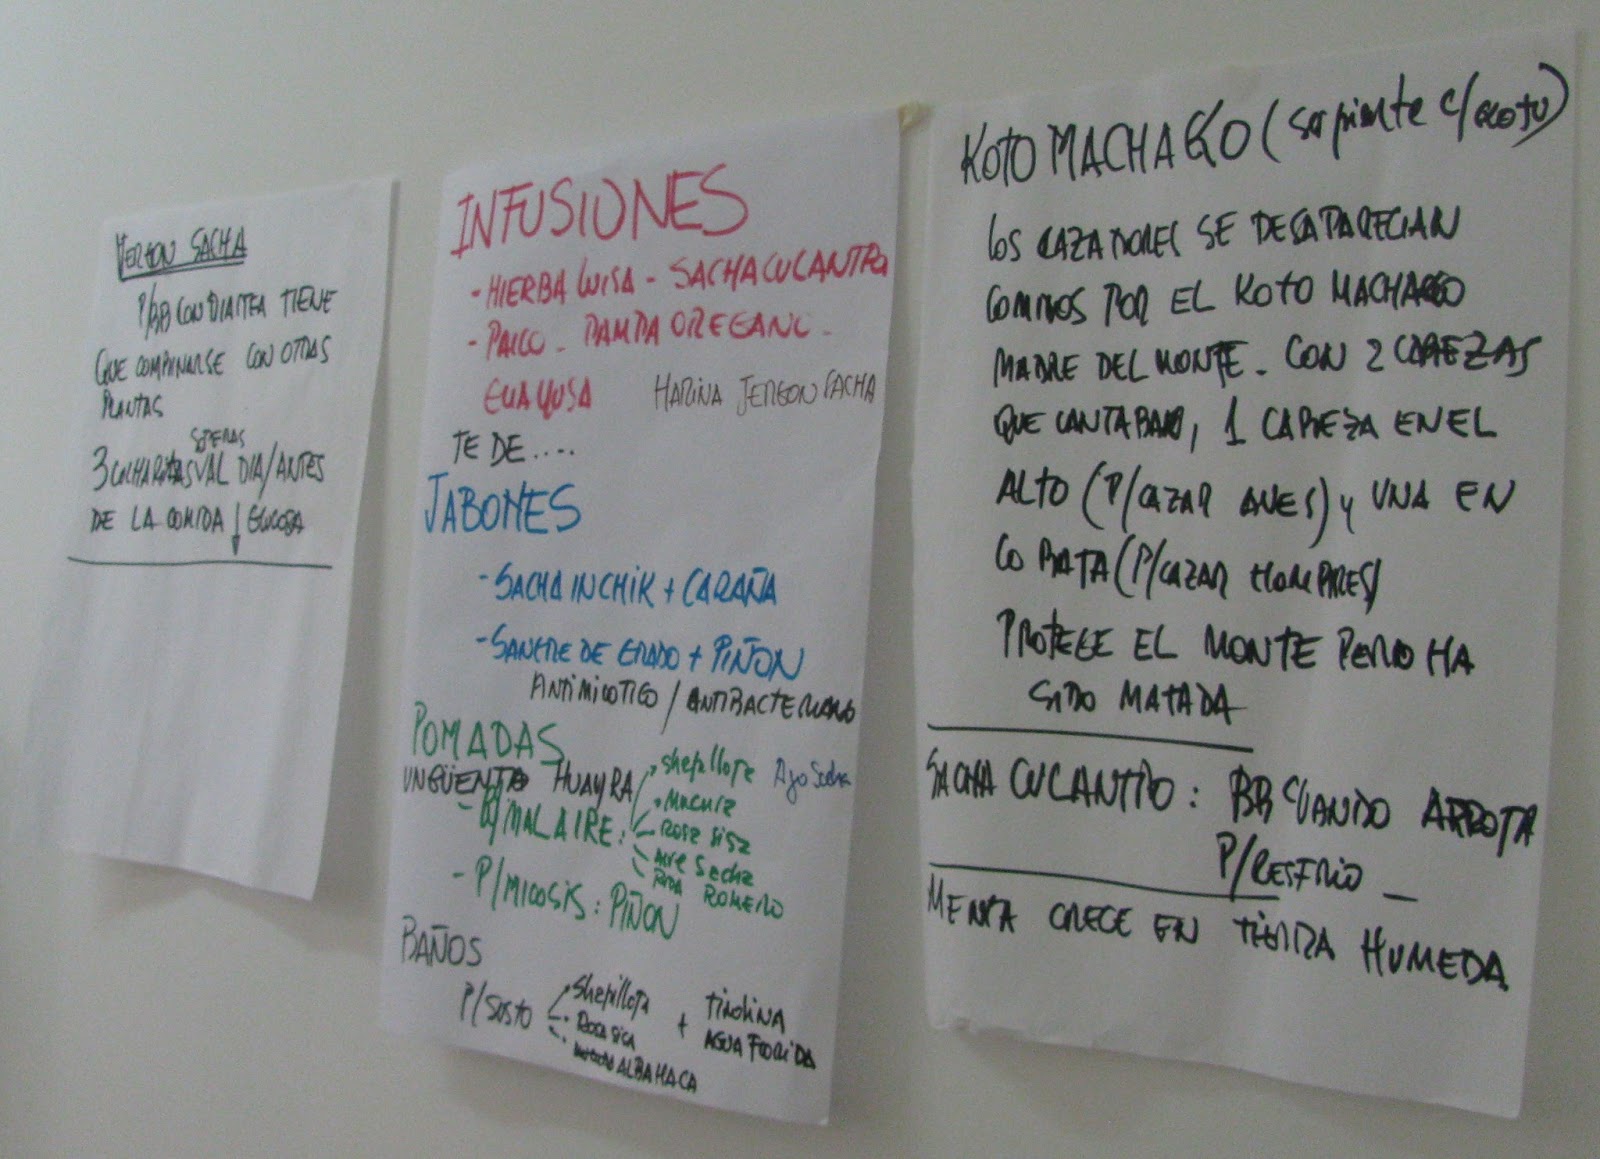 JERGON SACHA
P/BB CON DIARREA TIENE
QUE COMBINARSE CON OTRAS
PLANTAS
SOPERAS
3 CUCHARITAS AL DIA/ANTES
DE LA COMIDA ↓ GLUCOSA
INFUSIONES
- HIERBA LUISA - SACHACULANTRO
- PAICO - PAMPA OREGANO -
GUAYUSA HARINA JERGON SACHA
TE DE....
JABONES
- SACHA INCHIK + CARAÑA
- SANGRE DE GRADO + PIÑON
ANTIMICOTICO / ANTIBACTERIANO
POMADAS
UNGÜENTO HUAYRA
- P/MAL AIRE:
shepillota Ajo Sacha
Mucura
Rosa Sisa
Aire Sacha
RUDA ROMERO
- P/MICOSIS: PIÑON
BAÑOS
P/SUSTO
Shepillota
Rosa sisa
ALBAHACA
+ TIMOLINA
AGUA FLORIDA
KOTO MACHACO (serpiente c/coto)
LOS CAZADORES SE DESAPARECIAN
COMIDOS POR EL KOTO MACHACO
MADRE DEL MONTE - CON 2 CABEZAS
QUE CANTABAN, 1 CABEZA EN EL
ALTO (P/CAZAR AVES) y UNA EN
LO BAJA (P/CAZAR HOMBRES)
PROTEGE EL MONTE PERO HA
SIDO MATADA
SACHA CULANTRO: BB CUANDO ARROTA
P/RESFRIO -
MENTA CRECE EN TIERRA HUMEDA